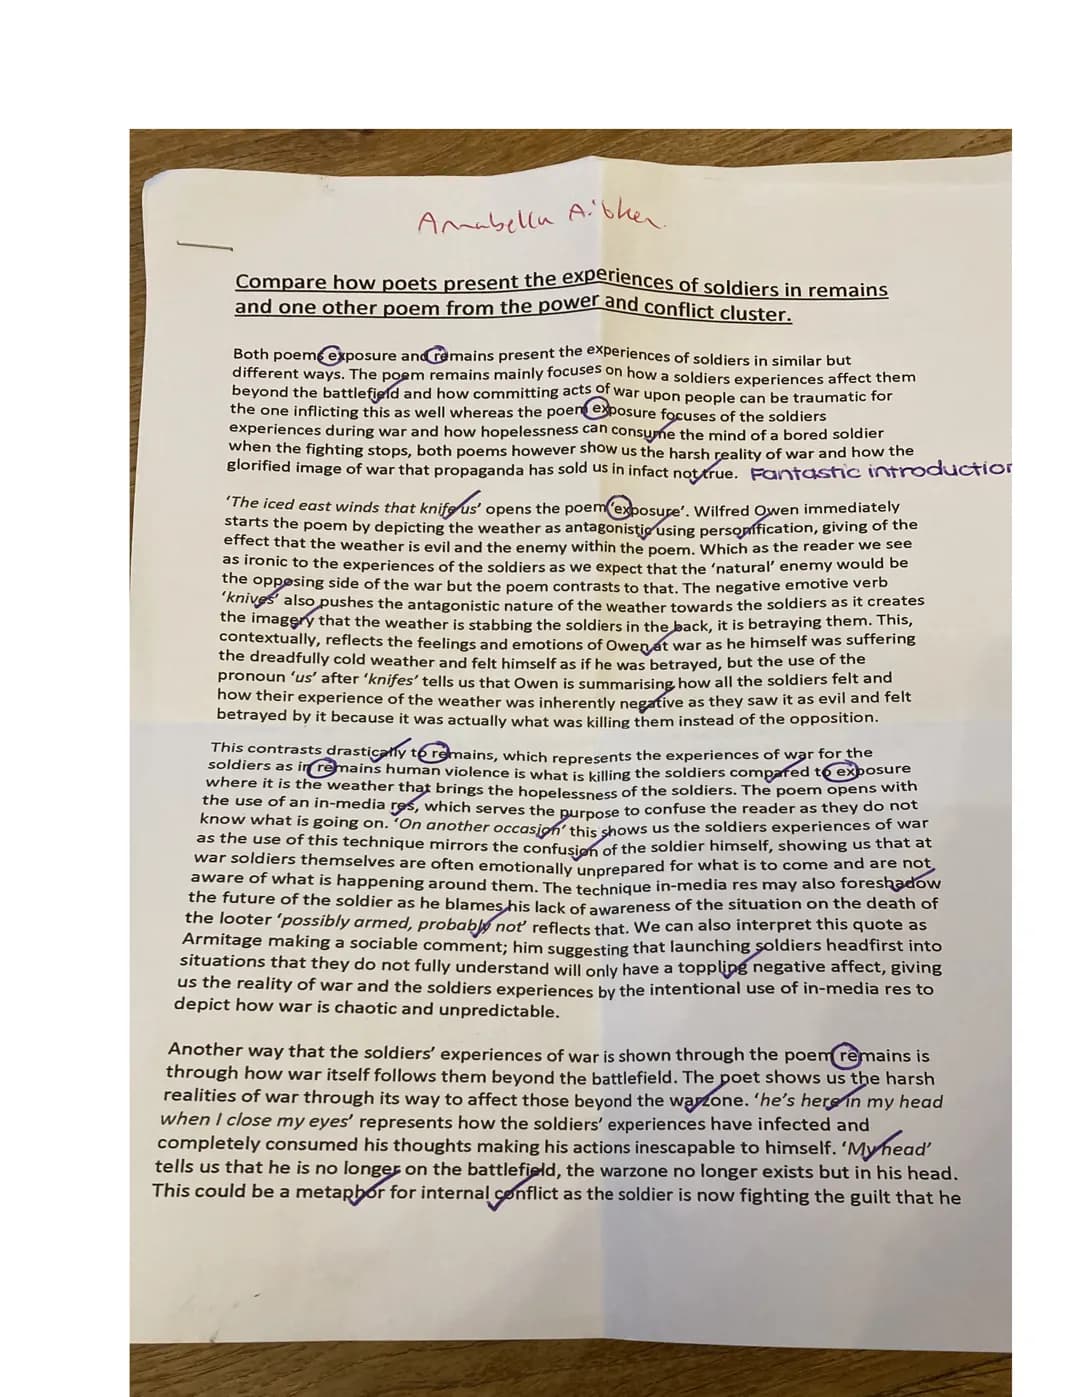 Annabella Aitken
Compare how poets present the experiences of soldiers in remains
and one other poem from the power and conflict cluster.
Both poems exposure and remains present the experiences of soldiers in similar but
different ways. The poem remains mainly focuses on how a soldiers experiences affect them
beyond the battlefield and how committing acts of war upon people can be traumatic for
the one inflicting this as well whereas the poem exposure focuses of the soldiers
experiences during war and how hopelessness can consume the mind of a bored soldier
when the fighting stops, both poems however show us the harsh reality of war and how the
glorified image of war that propaganda has sold us in infact not true. Fantastic introduction
'The iced east winds that knife us' opens the poem 'exposure'. Wilfred Owen immediately
starts the poem by depicting the weather as antagonistic using personification, giving of the
effect that the weather is evil and the enemy within the poem. Which as the reader we see
as ironic to the experiences of the soldiers as we expect that the 'natural' enemy would be
the opposing side of the war but the poem contrasts to that. The negative emotive verb
'knives' also pushes the antagonistic nature of the weather towards the soldiers as it creates
the imagery that the weather is stabbing the soldiers in the back, it is betraying them. This,
contextually, reflects the feelings and emotions of Owen at war as he himself was suffering
the dreadfully cold weather and felt himself as if he was betrayed, but the use of the
pronoun 'us' after 'knifes' tells us that Owen is summarising how all the soldiers felt and
how their experience of the weather was inherently negative as they saw it as evil and felt
betrayed by it because it was actually what was killing them instead of the opposition.
This contrasts drastically to remains, which represents the experiences of war for the
soldiers as in remains human violence is what is killing the soldiers compared to exposure
where it is the weather that brings the hopelessness of the soldiers. The poem opens with
the use of an in-media res, which serves the purpose to confuse the reader as they do not
know what is going on. 'On another occasion' this shows us the soldiers experiences of war
as the use of this technique mirrors the confusion of the soldier himself, showing us that at
war soldiers themselves are often emotionally unprepared for what is to come and are not
aware of what is happening around them. The technique in-media res may also foreshadow
the future of the soldier as he blames his lack of awareness of the situation on the death of
the looter 'possibly armed, probably not' reflects that. We can also interpret this quote as
Armitage making a sociable comment; him suggesting that launching soldiers headfirst into
situations that they do not fully understand will only have a toppling negative affect, giving
us the reality of war and the soldiers experiences by the intentional use of in-media res to
depict how war is chaotic and unpredictable.
Another way that the soldiers' experiences of war is shown through the poem remains is
through how war itself follows them beyond the battlefield. The poet shows us the harsh
realities of war through its way to affect those beyond the warzone. 'he's here in my head
when I close my eyes' represents how the soldiers' experiences have infected and
completely consumed his thoughts making his actions inescapable to himself. 'My head'
tells us that he is no longer on the battlefield, the warzone no longer exists but in his head.
This could be a metaphor for internal conflict as the soldier is now fighting the guilt that he